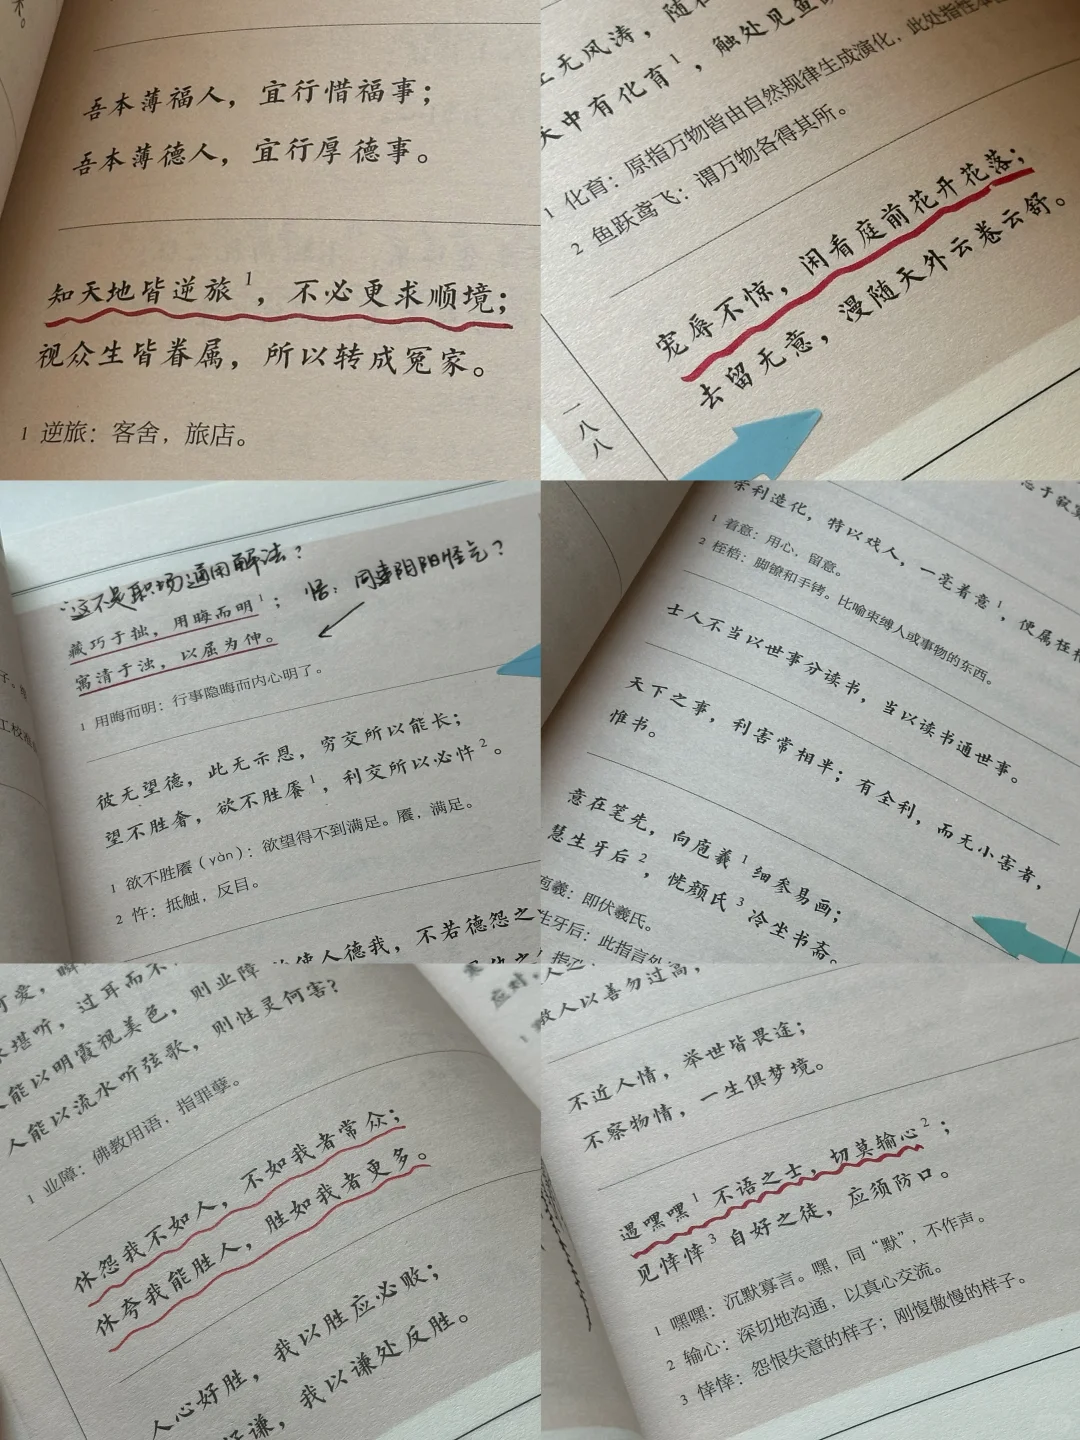 吾本薄福人，宜行惜福事；
吾本薄德人，宜行厚德事。
知天地皆逆旅1，不必更求顺境；
视众生皆眷属，所以转成冤家。
1 逆旅：客舍，旅店。
上无风涛，随在
天中有化育1，触处见鱼
1 化育：原指万物皆由自然规律生成演化，此处指性
2 鱼跃鸢飞：谓万物各得其所。
宠辱不惊，闲看庭前花开花落；
去留无意，漫随天外云卷云舒。
一八八
“这不是职场通用解法？
悟：同事阴阳怪气？
藏巧于拙，用晦而明1；
寓清于浊，以屈为伸。
1 用晦而明：行事隐晦而内心明了。
彼无望德，此无示恩，穷交所以能长；
望不胜奢，欲不胜餍1，利交所以必忤2。
1 欲不胜餍（yàn）：欲望得不到满足。餍，满足。
2 忤：抵触，反目。
使人德我，不若德怨之
荣利造化，特以戏人，一毫着意1，便属桎
1 着意：用心，留意。
2 桎梏：脚镣和手铐。比喻束缚人或事物的东西。
士人不当以世事分读书，当以读书通世事。
天下之事，利害常相半；有全利，而无小害者，
惟书。
意在笔先，向庖羲1细参易画；
慧生牙后2，恍颜氏3冷坐书斋。
庖羲：即伏羲氏。
生牙后：此指言外
可爱，
堪听，过耳而不
人能以明霞视美色，则业障
人能以流水听弦歌，则性灵何害？
1 业障：佛教用语，指罪孽。
休怨我不如人，不如我者常众；
休夸我能胜人，胜如我者更多。
人心好胜，我以胜应必败；
好谦，我以谦处反胜。
应对，
教人以善勿过高，
不近人情，举世皆畏途；
不察物情，一生俱梦境。
遇嘿嘿1不语之士，切莫输心2；
见悻悻3自好之徒，应须防口。
1 嘿嘿：沉默寡言。嘿，同“默”，不作声。
2 输心：深切地沟通，以真心交流。
3 悻悻：怨恨失意的样子；刚愎傲慢的样子。